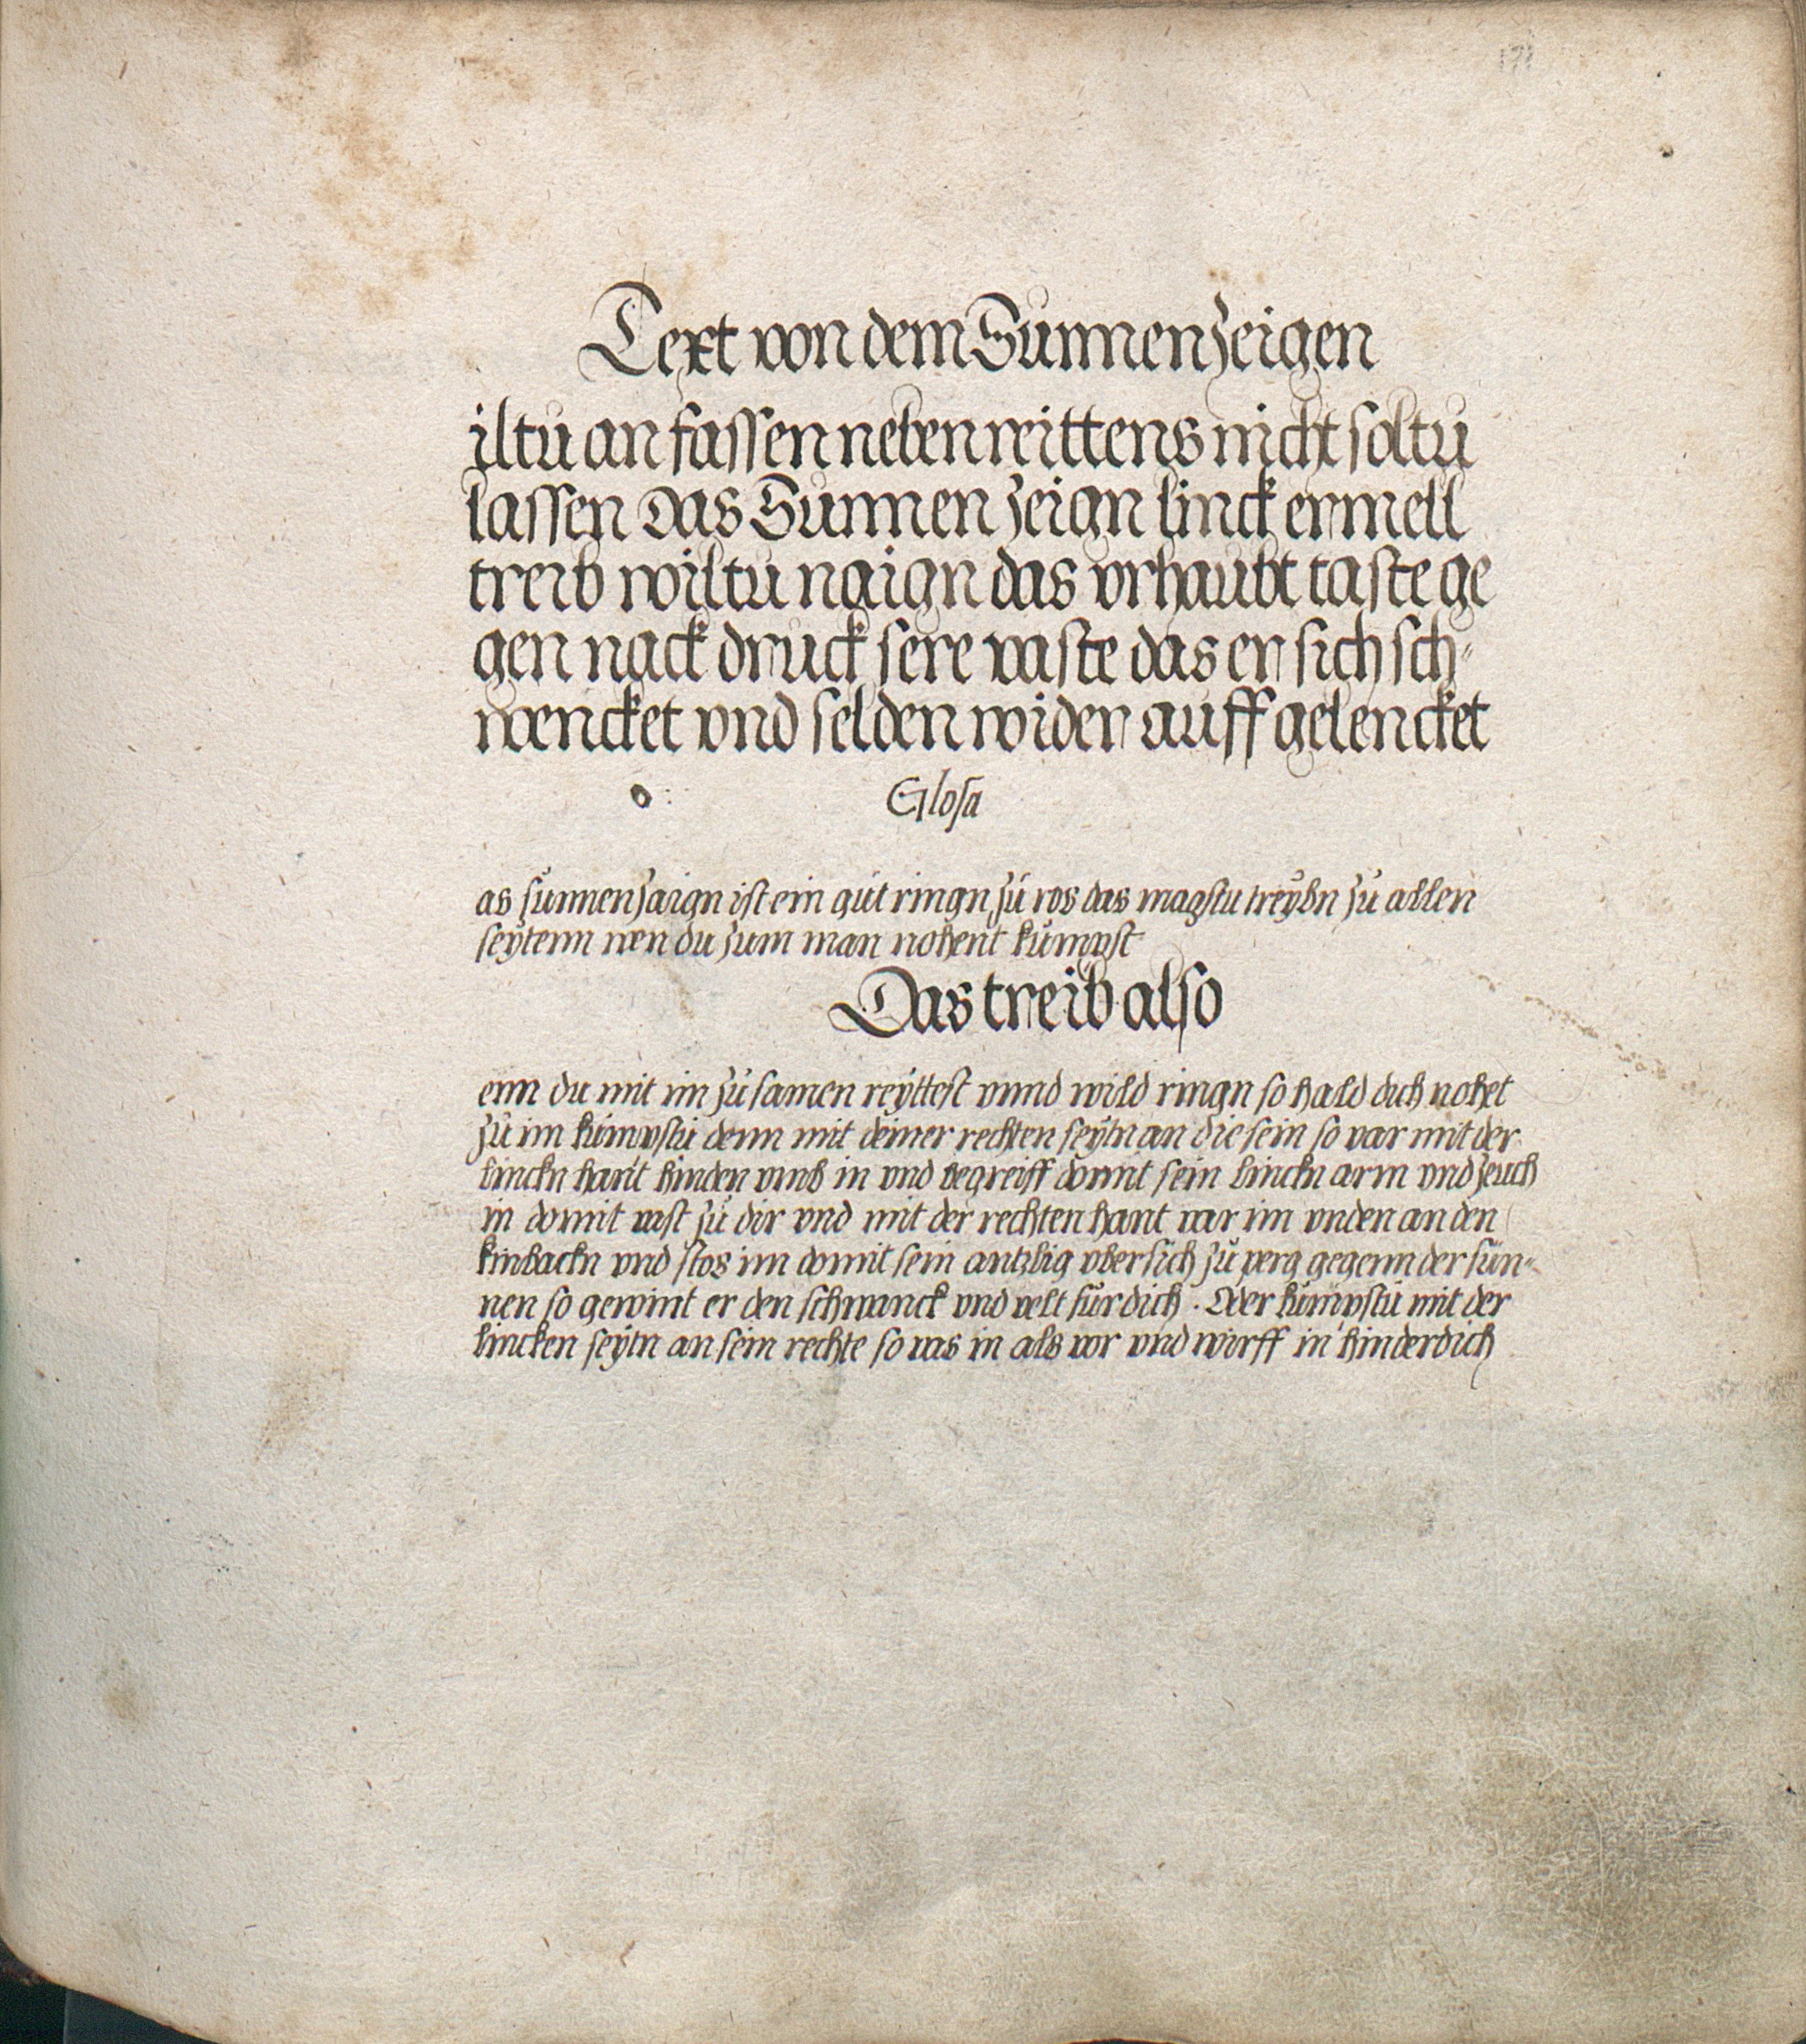 171
Text von dem Sunnenzeigen
iltu an fassen neben reittens nicht soltu
lassen Das Sunnen zeign linck ermell
treib wiltu naign das vrhaubt taste ge
gen nack druck sere vaste das er sich sch-
wencket vnd selden wider auff gelencket
Glosa
as sunnenzaign ist ein gut ringn zu ros das magstu treybn zu allen
seytenn wen du zum man nohent kumpst
Das treib also
enn du mit im zu samen reyttest vnnd wild ringn so hald dich nohet
zu im kumpstu denn mit deiner rechten seytn an die sein so var mit der
linckn hant hinden vmb in vnd begreiff domit sein linckn arm vnd zeuch
in domit vast zu dir vnd mit der rechten hant var im vnden an den
kinbackn vnd stos im domit sein antzlig vbersich zu perg gegenn der sun-
nen so gewint er den schwanck vnd velt fur dich. Oder kumpstu mit der
lincken seytn an sein rechte so vas in als vor vnd wirff in hinderdich